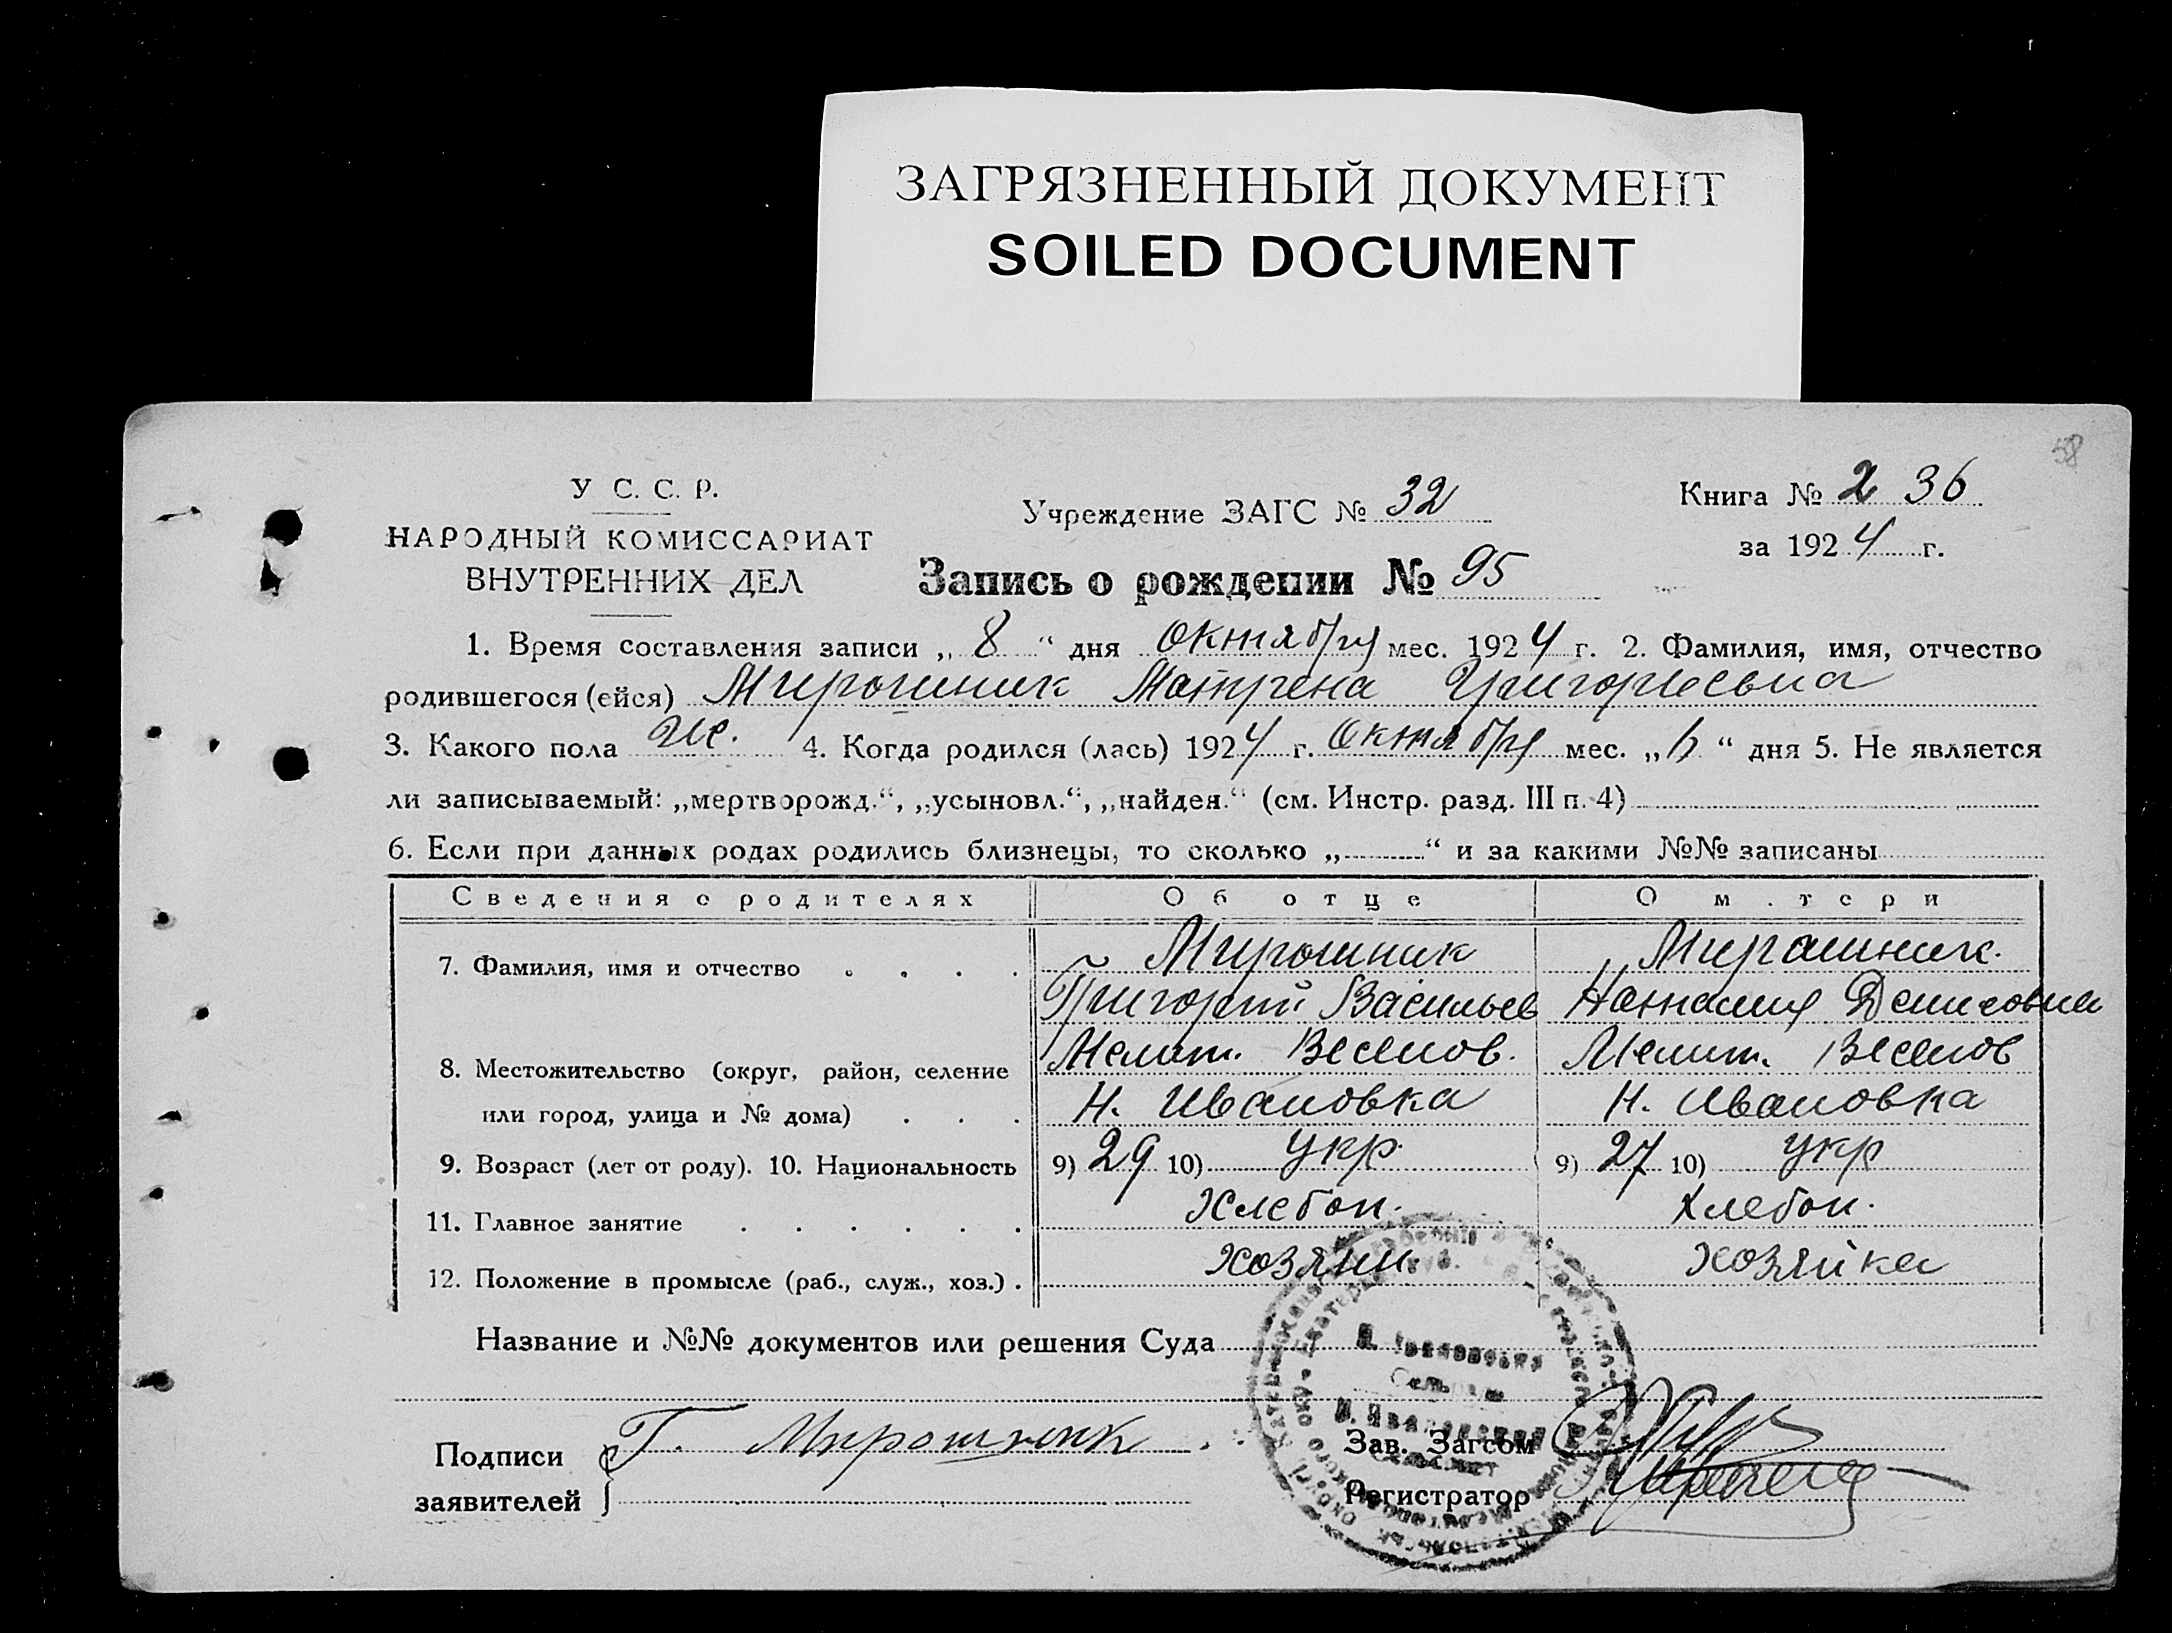 ЗАГРЯЗНЕННЫЙ ДОКУМЕНТ
SOILED DOCUMENT
58
У С. С. Р.
НАРОДНЫЙ КОМИССАРИАТ
ВНУТРЕННИХ ДЕЛ
Учреждение ЗАГС № 32
Книга № 2 36
за 1924 г.
Запись о рождении № 95
1. Время составления записи „ 8 “ дня октября мес. 1924 г. 2. Фамилия, имя, отчество
родившегося (ейся) Мирошник Матрена Григорьевна
3. Какого пола же. 4. Когда родился (лась) 1924 г. октября мес. „ “ дня 5. Не является
ли записываемый: „мертворожд.“, „усыновл.“, „найден.“ (см. Инстр. разд. III п. 4)
6. Если при данных родах родились близнецы, то сколько „ “ и за какими №№ записаны
Сведения о родителях Об отце О м.тери
7. Фамилия, имя и отчество . . . . Мирошник Мирошник.
Григорий Васильев Наталия Денисовна
8. Местожительство (округ, район, селение Мелит. Веселов. Мелит. Веселов
или город, улица и № дома) . . . Н. Ивановка Н. Ивановка
9. Возраст (лет от роду). 10. Национальность 9) 29 10) укр. 9) 27 10) укр
11. Главное занятие . . . . . . Хлебоп. Хлебоп.
12. Положение в промысле (раб., служ., хоз.) . хозяин. хозяйка
Название и №№ документов или решения Суда
Подписи
заявителей
Г. Мирошник
Зав. Загсом
Регистратор